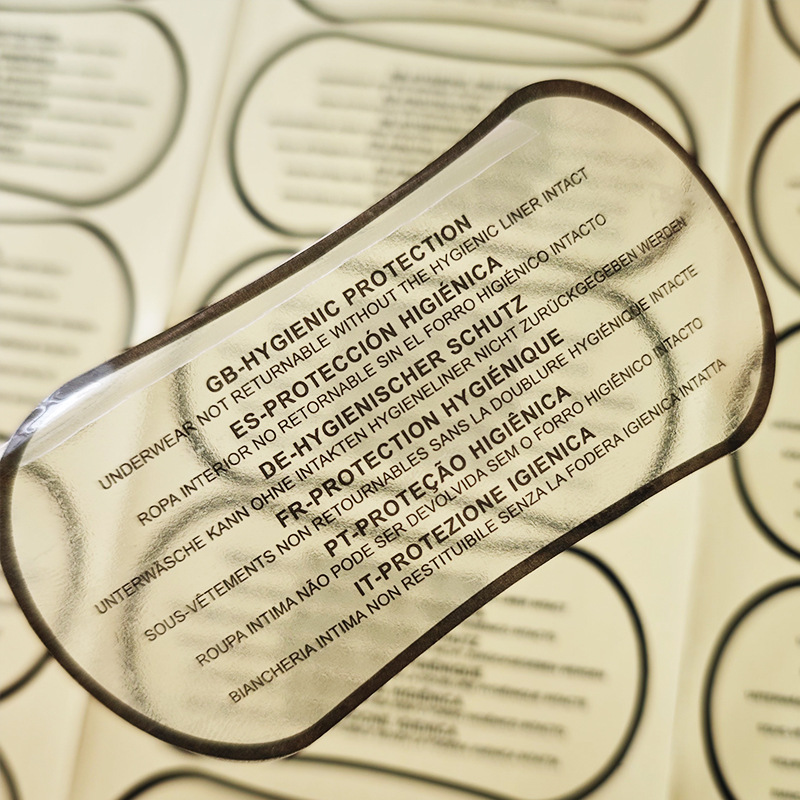 GB-HYGIENIC PROTECTION
UNDERWEAR NOT RETURNABLE WITHOUT THE HYGIENIC LINER INTACT
ES-PROTECCIÓN HIGIÉNICA
ROPA INTERIOR NO RETORNABLE SIN EL FORRO HIGIÉNICO INTACTO
DE-HYGIENISCHER SCHUTZ
UNTERWÄSCHE KANN OHNE INTAKTEN HYGIENELINER NICHT ZURÜCKGEGEBEN WERDEN
FR-PROTECTION HYGIÉNIQUE
SOUS-VÊTEMENTS NON RETOURNABLES SANS LA DOUBLURE HYGIÉNIQUE INTACTE
PT-PROTEÇÃO HIGIÊNICA
ROUPA INTIMA NÃO PODE SER DEVOLVIDA SEM O FORRO HIGIÊNICO INTACTO
IT-PROTEZIONE IGIENICA
BIANCHERIA INTIMA NON RESTITUIBILE SENZA LA FODERA IGIENICA INTATTA